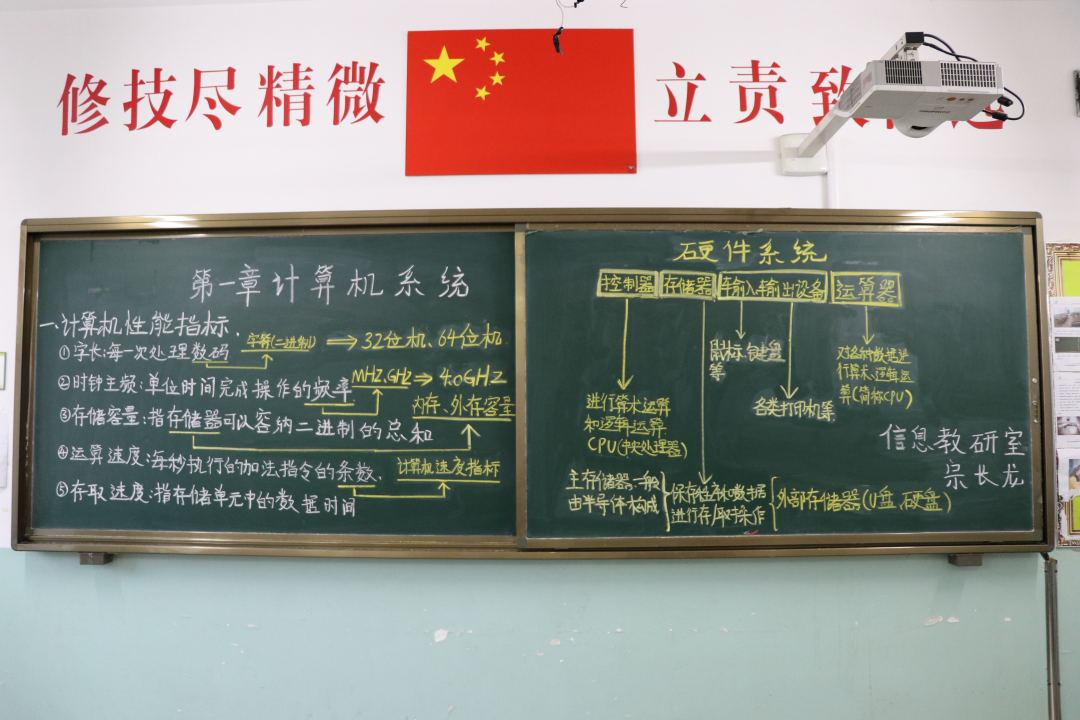 修技尽精微
立责致
第一章计算机系统
一.计算机性能指标.
①字长:每一次处理数码
字节(二进制)
32位机、64位机
②时钟主频:单位时间完成操作的频率
MHZ、GHZ
4.0GHZ
③存储容量:指存储器可以容纳二进制的总和
内存、外存容量
④运算速度:每秒执行的加法指令的条数、
计算机速度指标
⑤存取速度:指存储单元中的数据时间
硬件系统
控制器
存储器
输入输出设备
运算器
鼠标、键盘
等
各类打印机等
对各种数据进
行算术、逻辑运
算(简称CPU)
进行算术运算
和逻辑运算
CPU(中央处理器)
信息教研室
宗长龙
主存储器,一般
由半导体构成
保存程序和数据
进行存/取操作
外部存储器(U盘、硬盘)